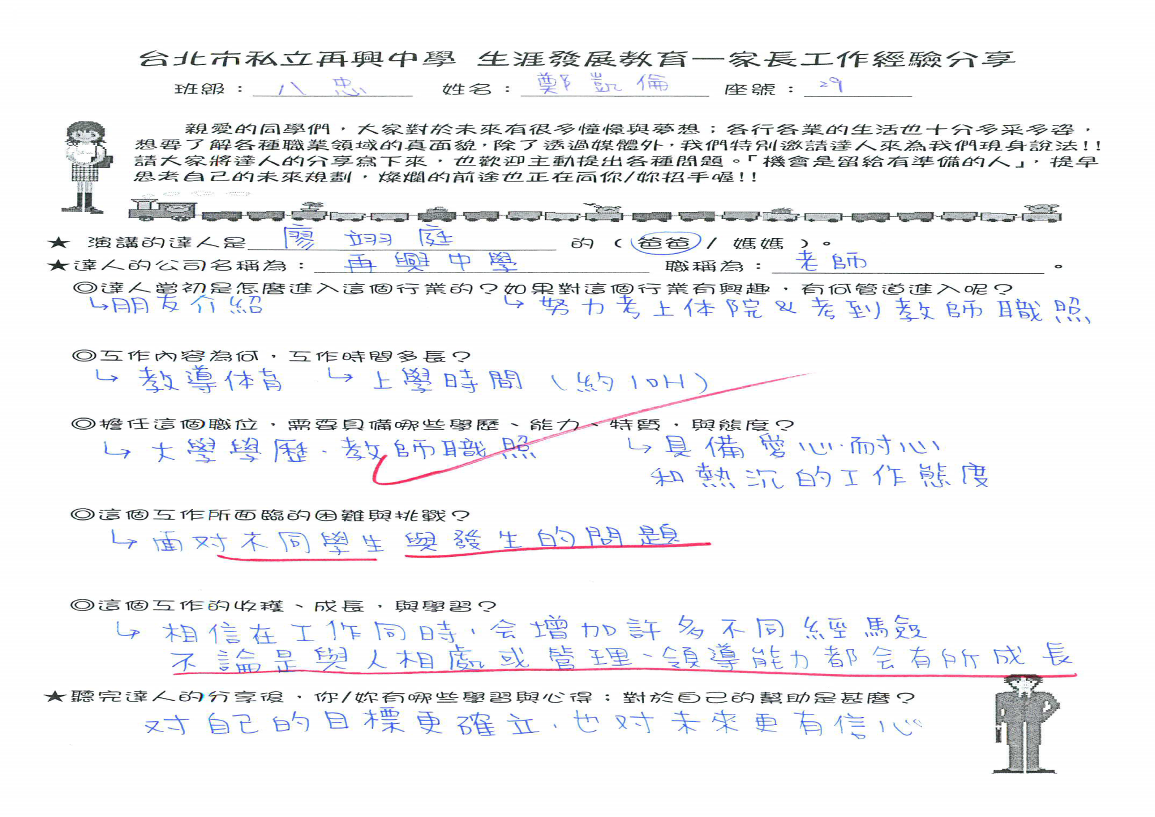 台北市私立再興中學 生涯發展教育—家長工作經驗分享
班級：八忠 姓名：鄭凱倫 座號：29
親愛的同學們，大家對於未來有很多憧憬與夢想；各行各業的生活也十分多采多姿，
想要了解各種職業領域的真面貌，除了透過媒體外，我們特別邀請達人來為我們現身說法!!
請大家將達人的分享寫下來，也歡迎主動提出各種問題。「機會是留給有準備的人」，提早
思考自己的未來規劃，燦爛的前途也正在向你/妳招手喔!!
★ 演講的達人是 廖翊庭 的（爸爸/ 媽媽）。
★達人的公司名稱為：再興中學 職稱為：老師。
◎達人當初是怎麼進入這個行業的？如果對這個行業有興趣，有何管道進入呢？
↳朋友介紹 ↳努力考上体院&考到教師職照
◎工作內容為何，工作時間多長？
↳教導体育 ↳上學時間（約10H）
◎擔任這個職位，需要具備哪些學歷、能力、特質，與態度？
↳大學學歷、教師職照 ↳具備愛心、耐心
和熱沉的工作態度
◎這個工作所面臨的困難與挑戰？
↳面对不同學生與發生的問題
◎這個工作的收穫、成長，與學習？
↳相信在工作同時，会增加許多不同經驗
不論是與人相處或管理、領導能力都会有所成長
★聽完達人的分享後，你/妳有哪些學習與心得；對於自己的幫助是甚麼？
对自己的目標更確立，也对未來更有信心